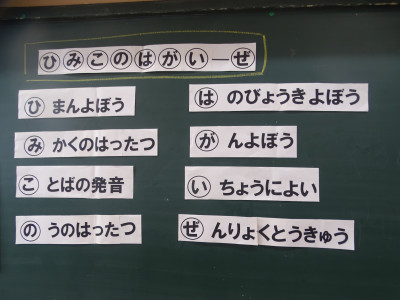 ひみこのはがいーぜ
ひ まんよぼう
み かくのはったつ
こ とばの発音
の うのはったつ
は のびょうきよぼう
が んよぼう
い ちょうによい
ぜ んりょくとうきゅう